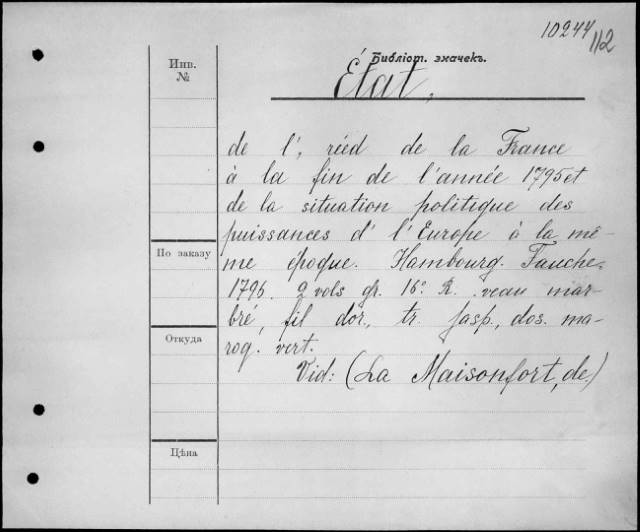 10244
112
Библіот. значекъ.
État,
Инв.
№
de l', réed de la France
à la fin de l'année 1795 et
de la situation politique des
puissances d' l'Europe à la mê-
me époque. Hambourg. Fauche.
По заказу
1796. 2 vols gr. 16º R. veau mar-
bré, fil dor., tr. jasp., dos. ma-
Откуда
roq. vert.
Vid: (La Maisonfort, de.)
Цѣна